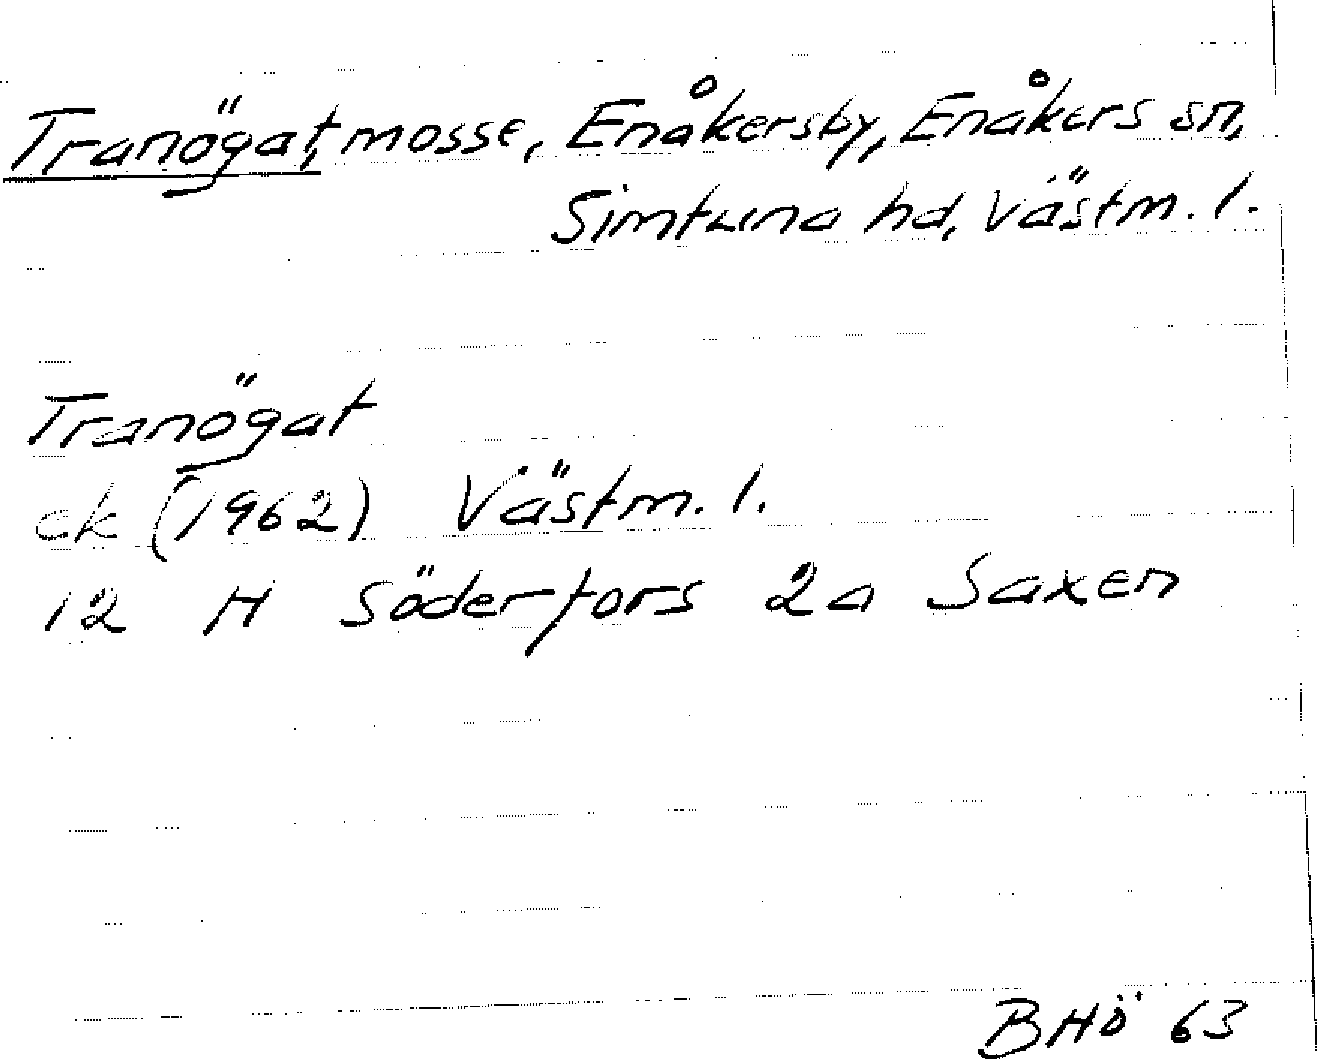 Tranögat, mosse, Enåkersby, Enåkers sn,
Simtuna hd, Västm. l.
Tranögat
ek (1962) Västm. l.
12 H Söderfors 2a Saxen
BHÖ 63